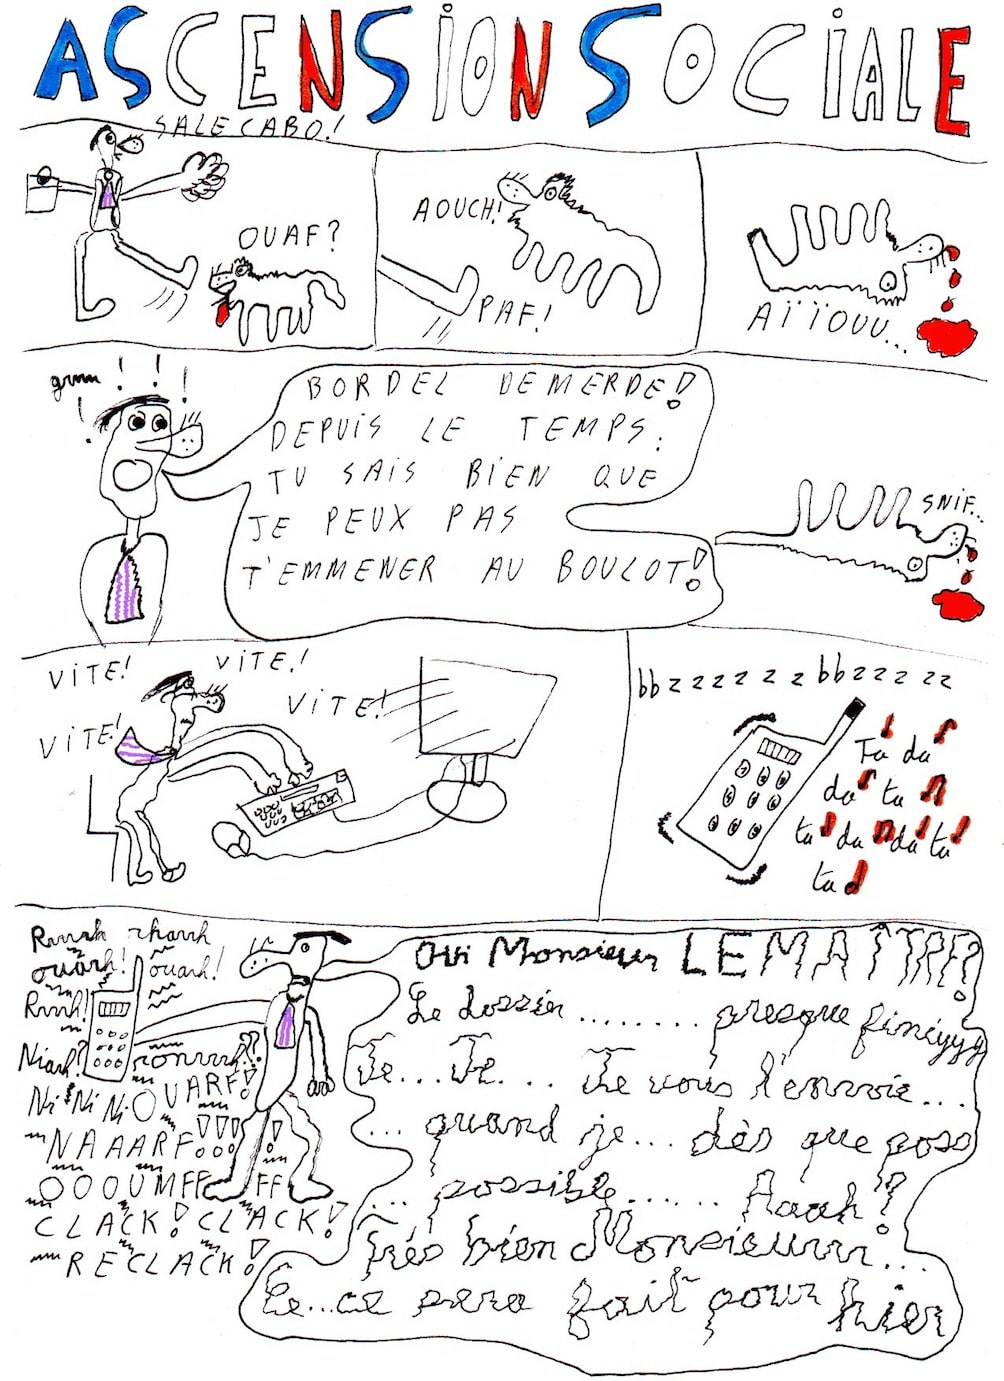 ASCENSION SOCIALE
SALE CABO!
OUAF?
AOUCH!
PAF!
AÏÏOUU...
grmm ! ! !
! !
BORDEL DE MERDE!
DEPUIS LE TEMPS.
TU SAIS BIEN QUE
JE PEUX PAS
T'EMMENER AU BOULOT!
SNIF...
VITE! VITE!
VITE!
VITE!
bbzzzzzz bbzzzzz
Ta da
da ta
ta da da ta
ta
Rrrrh rharrh
ouarh! ouarh!
Rrrrh!
Niarh? ronrrrh??
Ni Ni Ni OUARF!
NAAARF!!! !
OOOUMFF FF
CLACK! CLACK!
RECLACK!
Oui Monsieur LEMAÎTRE?
Le dossier ........ presque finiyyy
Je... Je... Je vous l'envoie...
... quand je... dès que poss
... possible...... Aaah?
très bien Monsieurrr...
Ce...ce sera fait pour hier